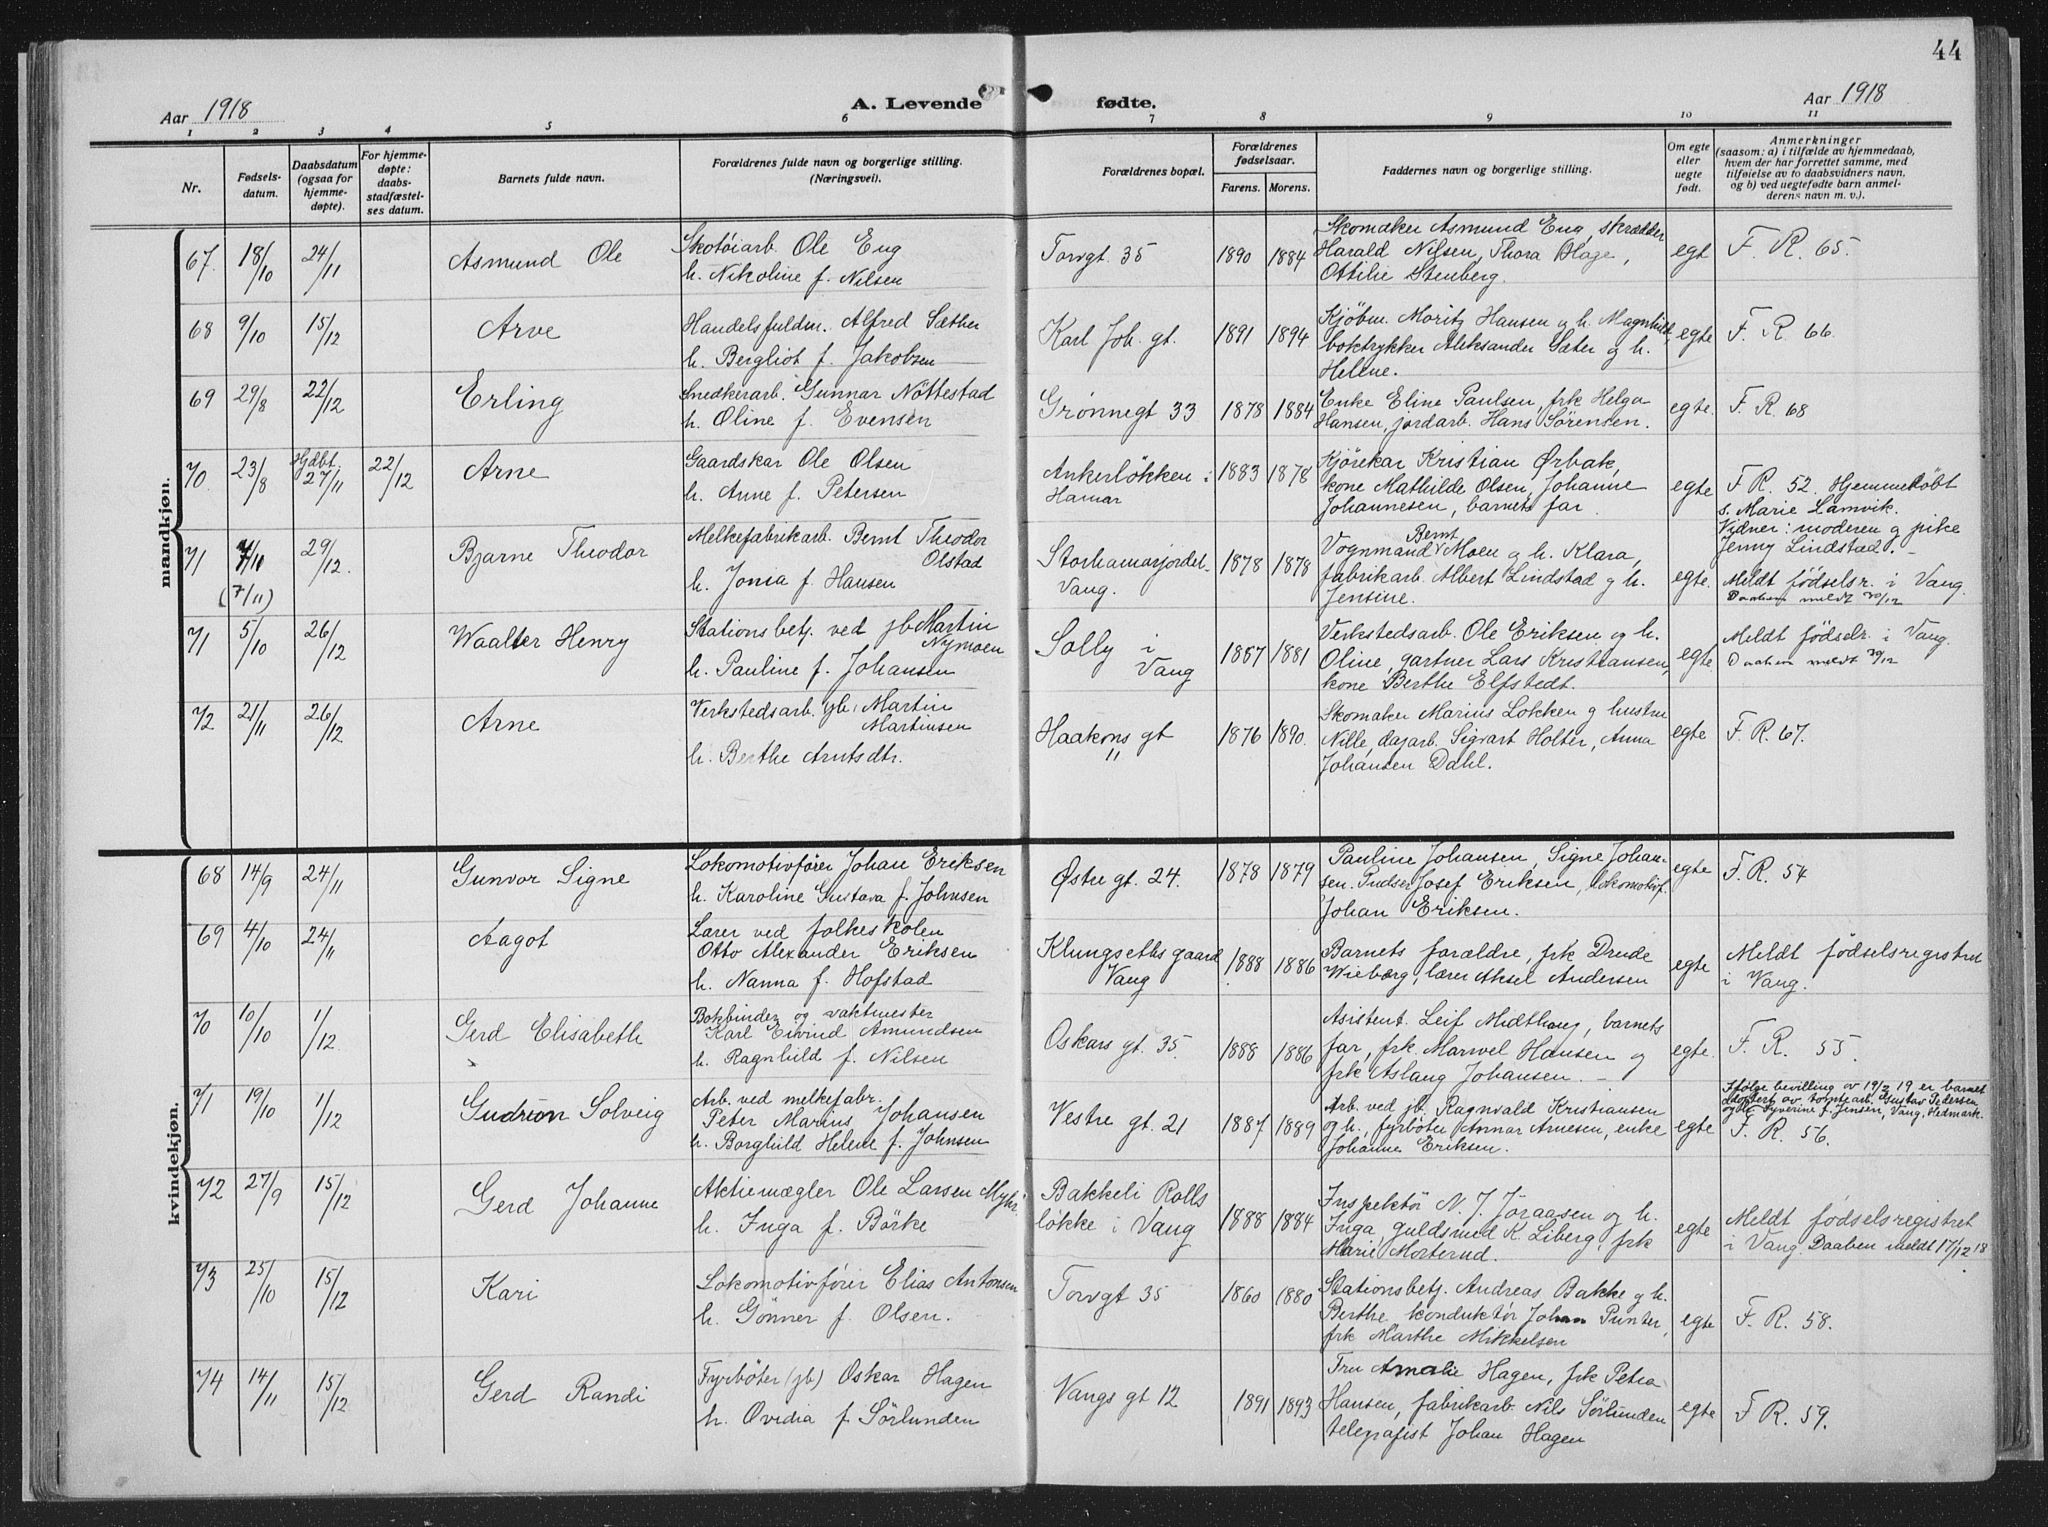 44
Aar 1918
A. Levende fødte.
Aar 1918
1 2 3 4 5 6 7 8 9 10 11
Nr.
Fødsels-
datum.
Daabsdatum
(ogsaa for
hjemme-
døpte).
For hjemme-
døpte:
daabs-
stadfæstel-
ses datum.
Barnets fulde navn.
Forældrenes fulde navn og borgerlige stilling.
(Næringsvei).
Forældrenes bopæl.
Forældrenes
fødselsaar.
Farens. Morens.
Faddernes navn og borgerlige stilling.
Om egte
eller
uegte
født.
Anmerkninger
(saasom: a) i tilfælde av hjemmedaab,
hvem der har forrettet samme, med
tilføielse av to daabsvidners navn,
og b) ved uegtefødte barn anmel-
derens navn m. v.).
mandkjøn.
67 18/10 24/11 Asmund Ole
Skotøiarb. Ole Eng
h. Nikoline f. Nilsen
Torvgt. 35 1890 1884
Skomaker Asmund Eng, skrædder
Harald Nilsen, Thora Hage,
Ottilie Stenberg.
egt F. R. 65.
68 9/10 15/12 Arve
Handelsfuldm. Alfred Sæther
h. Bergliot f. Jakobsen
Karl Joh. gt. 1891 1894
Kjöbm. Moritz Hansen og h. Magnhild,
boktrykker Aleksander Sæter og h.
Helene.
egte F. R. 66
69 29/8 22/12 Erling
Snedkerarb. Gunnar Nöttestad
h. Oline f. Evensen
Grønnegt 33 1878 1884
Enke Eline Paulsen, frk Helga
Hansen, jordarb. Hans Sørensen.
egte. F. R. 68
70 23/8 Hjdbt 27/11 22/12 Arne
Gaardskar Ole Olsen
h. Anne f. Petersen
Ankerløkken i
Hamar
1883 1878
Kjörekar Kristian Ørbak,
kone Mathilde Olsen, Johanne
Johannesen, barnets far.
egte F. R. 52. Hjemmedöbt
s. Marie Lamvik.
Vidner: moderen og pike
Jenny Lindstad. -
71 7/10 (7/11) 29/12. Bjarne Theodor
Melkefabrikarb. Bernt Theodor
Olstad
h. Jonia f. Hansen
Storhamarjordet-
Vang.
1878 1878
Vognmand Bernt Moen og h. Klara,
fabrikarb. Albert Lindstad og h.
Jensine.
egte. Meldt fødselsr. i Vang.
Daaben meldt 30/12
71 5/10 26/12 Waalter Henry
Stationsbetj. ved jb. Martin
Nymoen
h. Pauline f. Johansen
Solly i
Vang
1887 1881
Verkstedsarb. Ole Eriksen og h.
Oline, gartner Lars Kristiansen,
kone Berthe Elfstedt.
egte. Meldt fødselr. i Vang.
Daaben meldt 30/12
72 21/11 26/12 Arne
Verkstedsarb. jb. Martin
Martinsen
h. Berthe Arntsdtr.
Haakons gt
1876 1890.
Skomaker Marius Løkken og hustru
Nille, dagarb. Sigvart Holter, Anna
Johansen Dahl.
egte F. R. 67.
kvindekjøn.
68 14/9 24/11 Gunvor Signe
Lokomotivfører Johan Eriksen
h. Karoline Gustava f. Johnsen
Østre gt. 24. 1878 1879
Pauline Johansen, Signe Johan-
sen. Pudser Josef Eriksen, lokomotivf.
Johan Eriksen.
egte F. R. 54
69 4/10 24/11 Aagot
Lærer ved folkeskolen
Otto Alexander Eriksen
h. Nanna f. Hofstad
Klungseths gaard
Vang
1888 1886
Barnets forældre, frk Drude
Wieborg, lærer Aksel Andersen
egte Meldt fødselsregistret
i Vang.
70 10/10 1/12 Gerd Elisabeth
Bokbinder og vaktmester
Karl Eivind Amundsen
h. Ragnhild f. Nilsen
Oskars gt. 35. 1888 1886
Asistent. Leif Midthaug, barnets
far, frk. Marwel Hansen og
frk Aslaug Johansen. -
egte. F. R. 55.
71 19/10 1/12 Gudrun Solveig
Arb. ved melkefabr.
Peter Marius Johansen
h. Borghild Helene f. Johnsen
Vestre gt. 21 1887 1889
Arb. ved jb. Ragnvald Kristiansen
og h., fyrböter Annar Arnesen, enke
Johanne Eriksen.
egte Ifølge bevilling av 19/2 19 er barnet
adoptert av tomtearb. Gustav Pedersen
og h. Syverine f. Jensen, Vang, Hedmark.
F. R. 56.
72 27/9 15/12 Gerd Johanne
Aktiemægler Ole Larsen Myhr
h. Inga f. Börke
Bakkeli Rolls
løkke i Vang
1888 1884
Inspektör N. J. Jöraasen og h.
Inga, guldsmed K. Liberg, frk
Marie Morterud.
egte Meldt fødselsregistret
i Vang. Daaben meldt 17/12 18
73 25/10 15/12 Kari
Lokomotivfører Elias Antonsen
h. Gönner f. Olsen.
Torvgt 35 1860 1880
Stationsbetj. Andreas Bakke og h.
Berthe, konduktør Johan Punter,
frk Marthe Mikkelsen
egte F. R. 58.
74 14/11 15/12 Gerd Randi
Fyrbøter (jb) Oskar Hagen
h. Ovidia f. Sörlunden
Vangs gt 12 1891 1893
Fru Amalie Hagen, frk Petra
Hansen, fabrikarb. Nils Sørlunden
telegrafist Johan Hagen
egte F. R. 59.